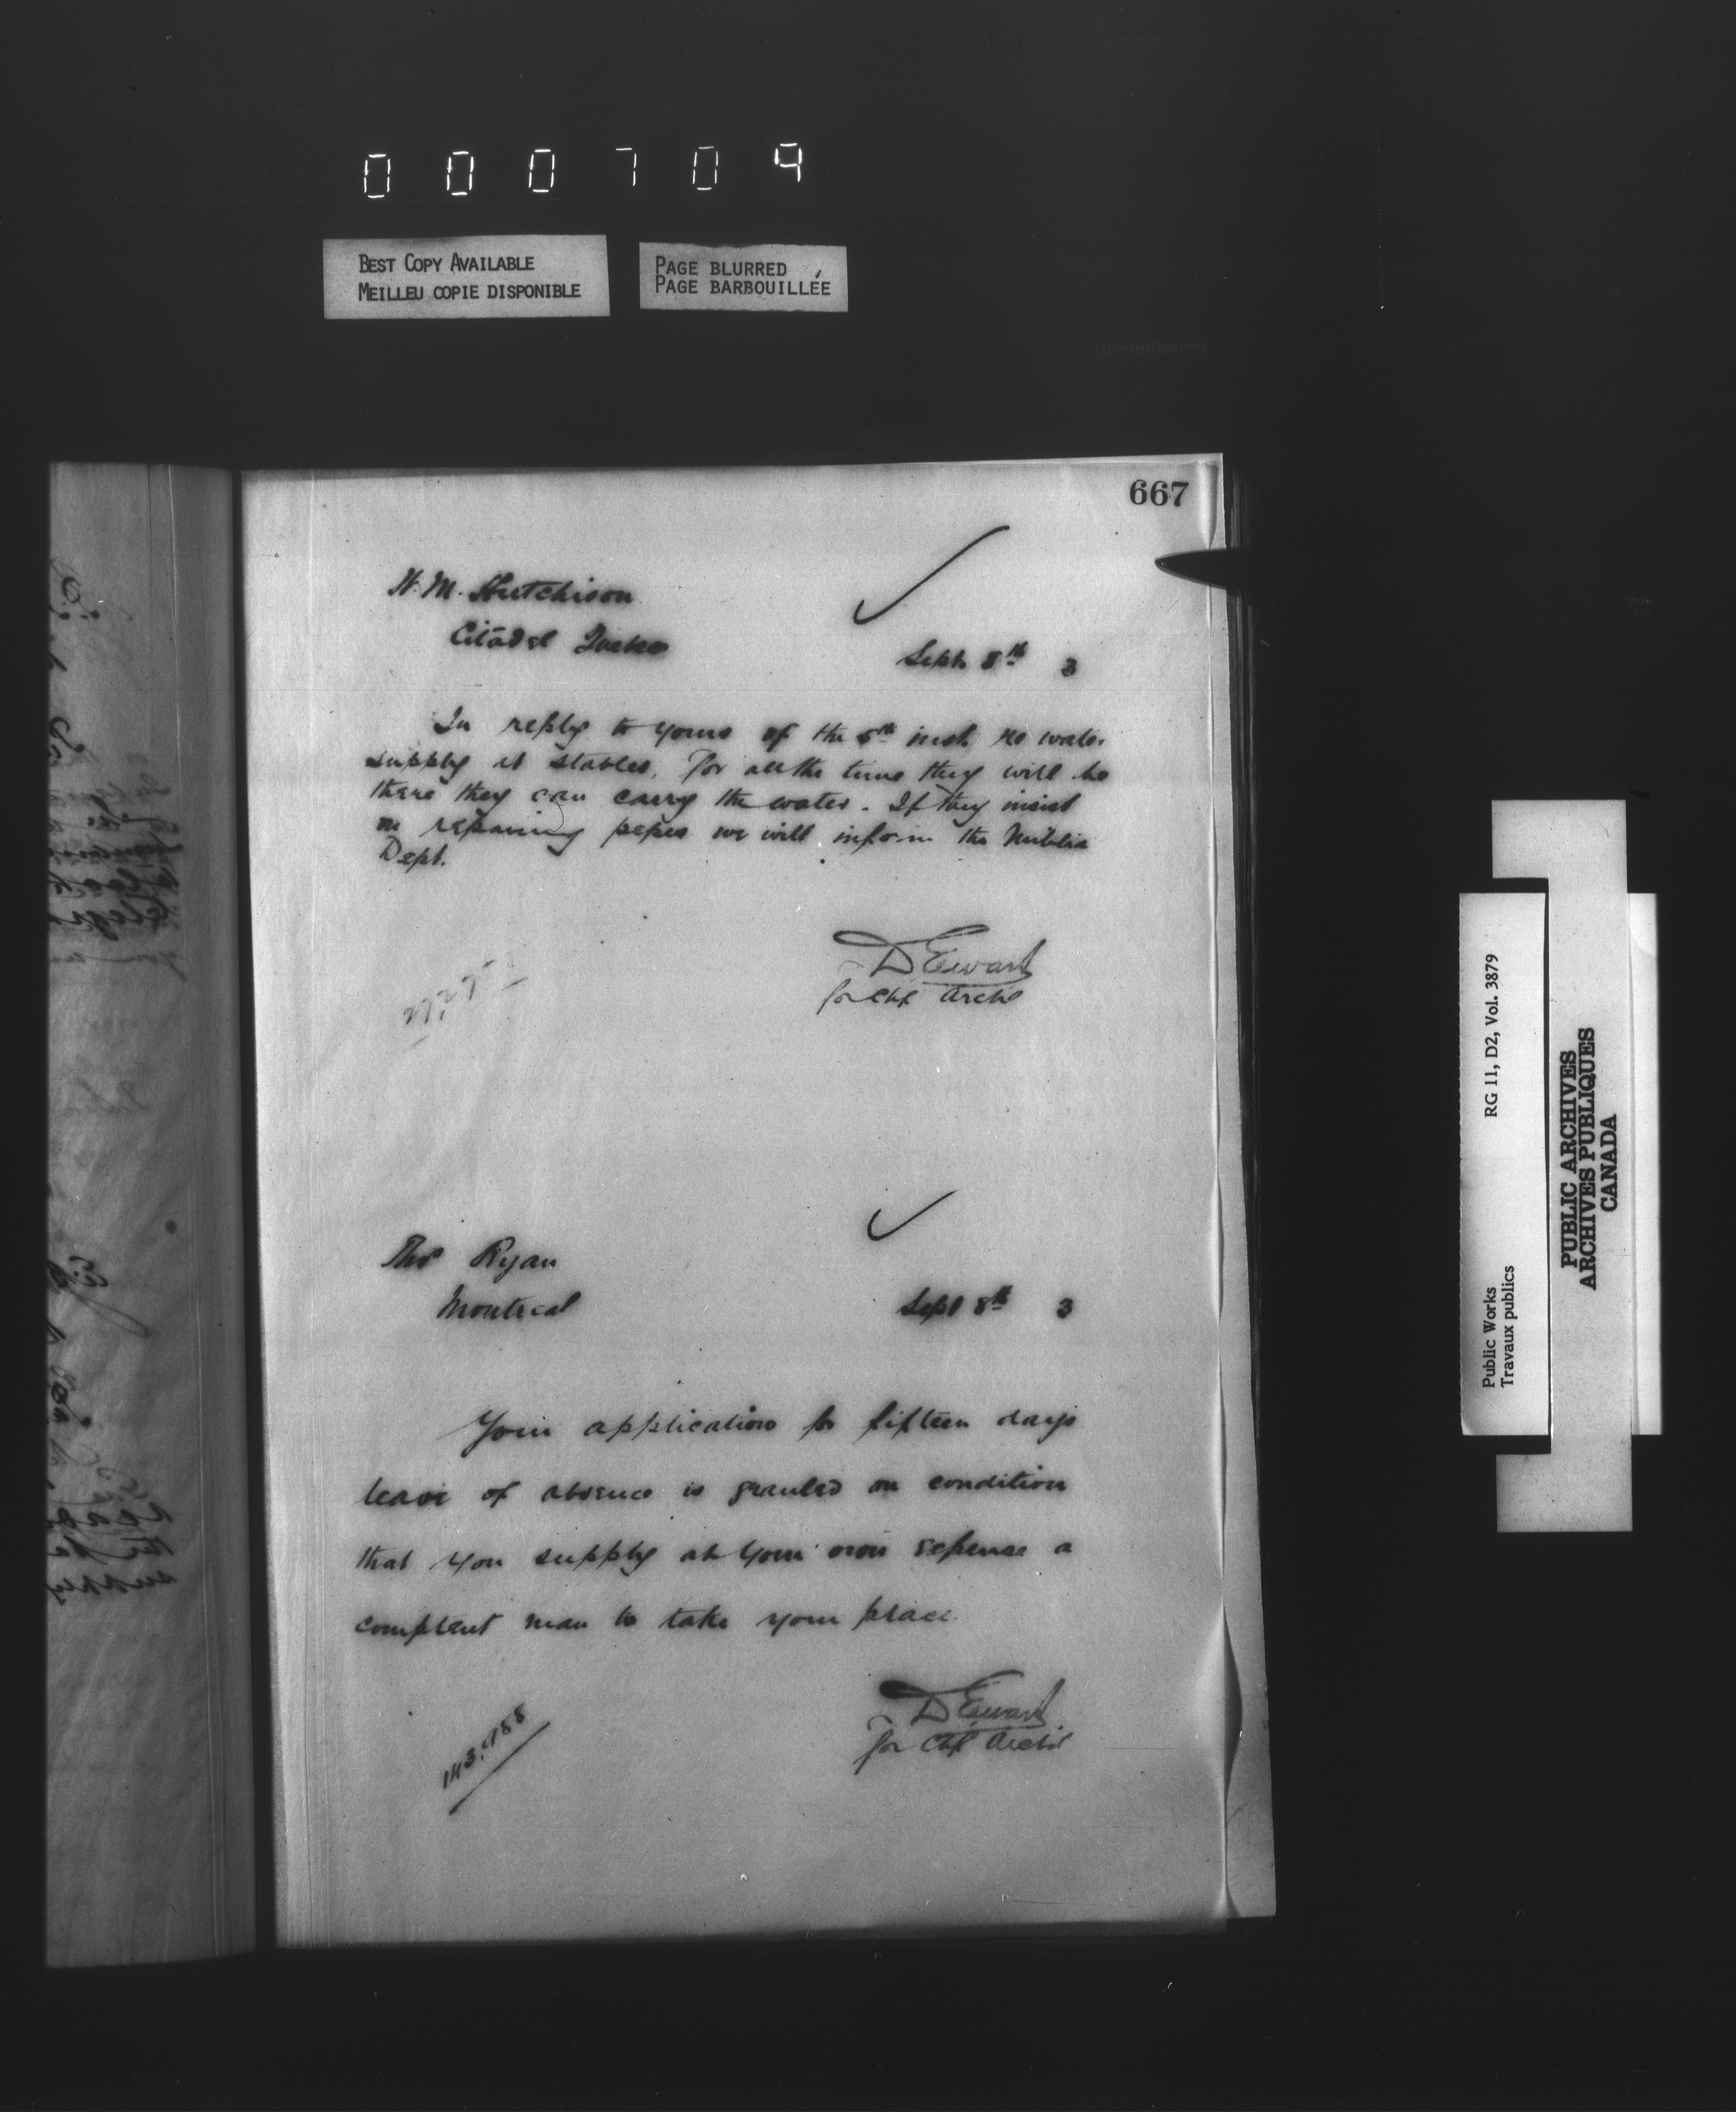 000709
BEST COPY AVAILABLE
MEILLEU COPIE DISPONIBLE
PAGE BLURRED
PAGE BARBOUILLÉE
667
H. M. Hutchison
Citadel Quebec
Sept. 8th 3
In reply to yours of the 5th inst. re water
supply at stables, for all the time they will be
there they can carry the water. If they insist
on repairing pipes we will inform the Militia
Dept.
D Ewart
for Chf Archt
Thos Ryan
Montreal
Sept 8th 3
Your application for fifteen days
leave of absence is granted on condition
that you supply at your own expense a
comptent man to take your place
D Ewart
for Chf Archt
143,988
Public Works
Travaux publics
RG 11, D2, Vol. 3879
PUBLIC ARCHIVES
ARCHIVES PUBLIQUES
CANADA